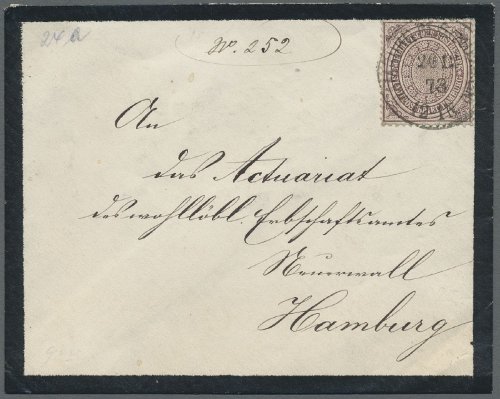 24a
No. 252
26 12
73
An
das Actuariat
des wohllöbl. Erbschaftsamtes
Neuerwall
Hamburg